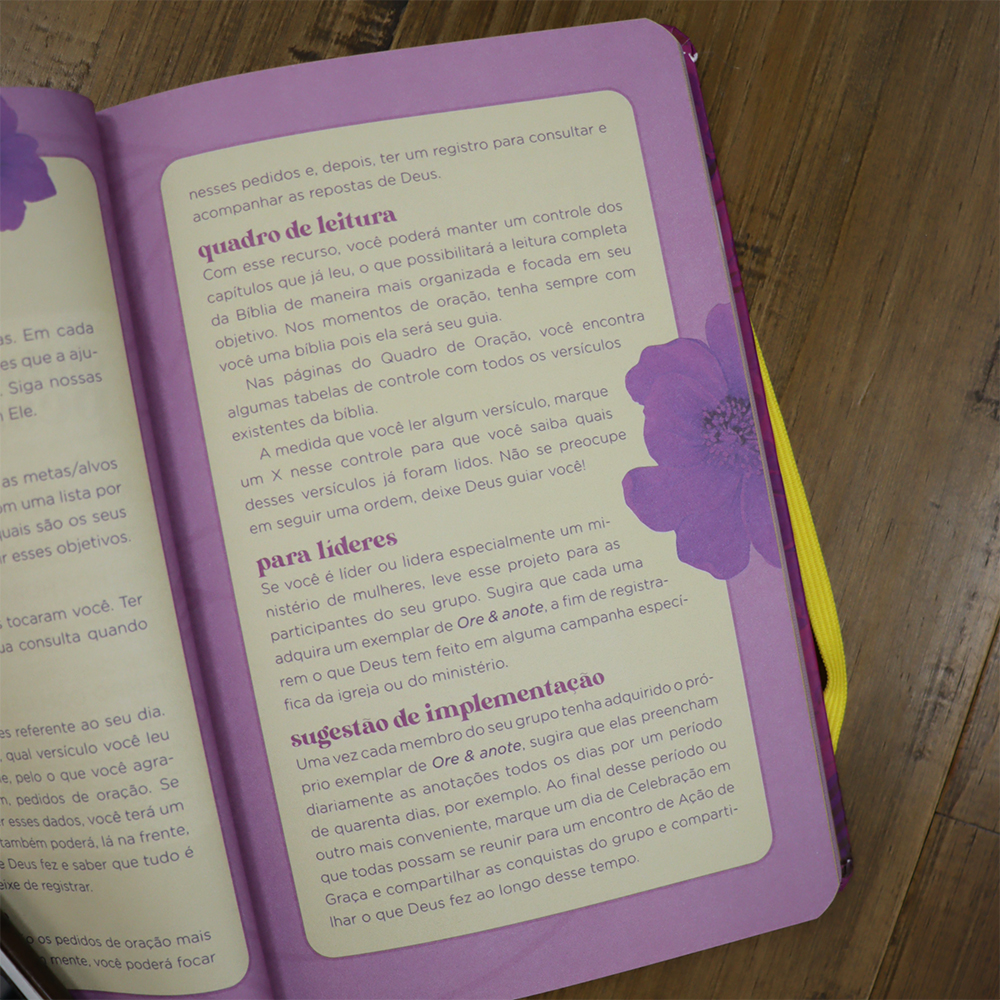 as. Em cada
es que a aju-
. Siga nossas
Ele.
as metas/alvos
om uma lista por
quais são os seus
ir esses objetivos.
tocaram você. Ter
ua consulta quando
es referente ao seu dia.
, qual versículo você leu
e, pelo o que você agra-
m, pedidos de oração. Se
r esses dados, você terá um
também poderá, lá na frente,
e Deus fez e saber que tudo é
eixe de registrar.
o os pedidos de oração mais
mente, você poderá focar
nesses pedidos e, depois, ter um registro para consultar e
acompanhar as repostas de Deus.
quadro de leitura
Com esse recurso, você poderá manter um controle dos
capítulos que já leu, o que possibilitará a leitura completa
da Bíblia de maneira mais organizada e focada em seu
objetivo. Nos momentos de oração, tenha sempre com
você uma bíblia pois ela será seu guia.
Nas páginas do Quadro de Oração, você encontra
algumas tabelas de controle com todos os versículos
existentes da bíblia.
A medida que você ler algum versículo, marque
um X nesse controle para que você saiba quais
desses versículos já foram lidos. Não se preocupe
em seguir uma ordem, deixe Deus guiar você!
para líderes
Se você é líder ou lidera especialmente um mi-
nistério de mulheres, leve esse projeto para as
participantes do seu grupo. Sugira que cada uma
adquira um exemplar de Ore & anote, a fim de registra-
rem o que Deus tem feito em alguma campanha especí-
fica da igreja ou do ministério.
sugestão de implementação
Uma vez cada membro do seu grupo tenha adquirido o pró-
prio exemplar de Ore & anote, sugira que elas preencham
diariamente as anotações todos os dias por um período
de quarenta dias, por exemplo. Ao final desse período ou
outro mais conveniente, marque um dia de Celebração em
que todas possam se reunir para um encontro de Ação de
Graça e compartilhar as conquistas do grupo e comparti-
lhar o que Deus fez ao longo desse tempo.